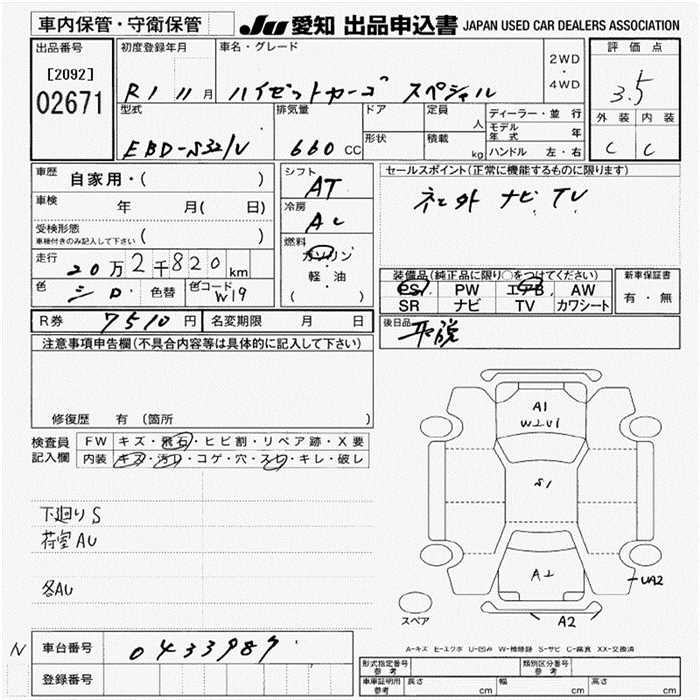 車内保管・守衛保管
JU 愛知 出品申込書 JAPAN USED CAR DEALERS ASSOCIATION
出品番号
[2092]
02671
初度登録年月
R1 11月
車名・グレード
ハイゼットカーゴ スペシャル
2WD
・
4WD
評価点
3.5
外装 内装
C C
型式
EBD-S321V
排気量
660 CC
ドア
形状
定員
人
積載
kg
ディーラー・並行
モデル年式 年
ハンドル 左・右
車歴 自家用・( )
車検 年 月( 日)
受検形態
車検付きのみ記入して下さい ( )
走行 20万2千820km
色 シロ 色替 色コード W19
シフト
AT
冷房
AC
燃料
ガソリン
軽・油
( )
セールスポイント(正常に機能するものに限ります)
社外 ナビ TV
装備品(純正品に限り○をつけてください)
PS PW エアB AW
SR ナビ TV カワシート
新車保証書
有・無
後日品
取説
R券 7510円 名変期限 月 日
注意事項申告欄(不具合内容等は具体的に記入して下さい)
修復歴 有 (箇所 )
検査員
記入欄
FW キズ・飛石・ヒビ割・リペア跡・X要
内装 キズ・汚レ・コゲ・穴・スレ・キレ・破レ
下廻りS
荷室AU
各AU
A1
W2U1
S1
A2
UA2
A2
スペア
A-キズ E-エクボ U-凹み W-補修跡 S-サビ C-腐食 XX-交換済
N
車台番号 0433987
登録番号
形式指定番号
参考
類別区分番号
参考
車庫証明用
参考
長さ cm 幅 cm 高さ cm